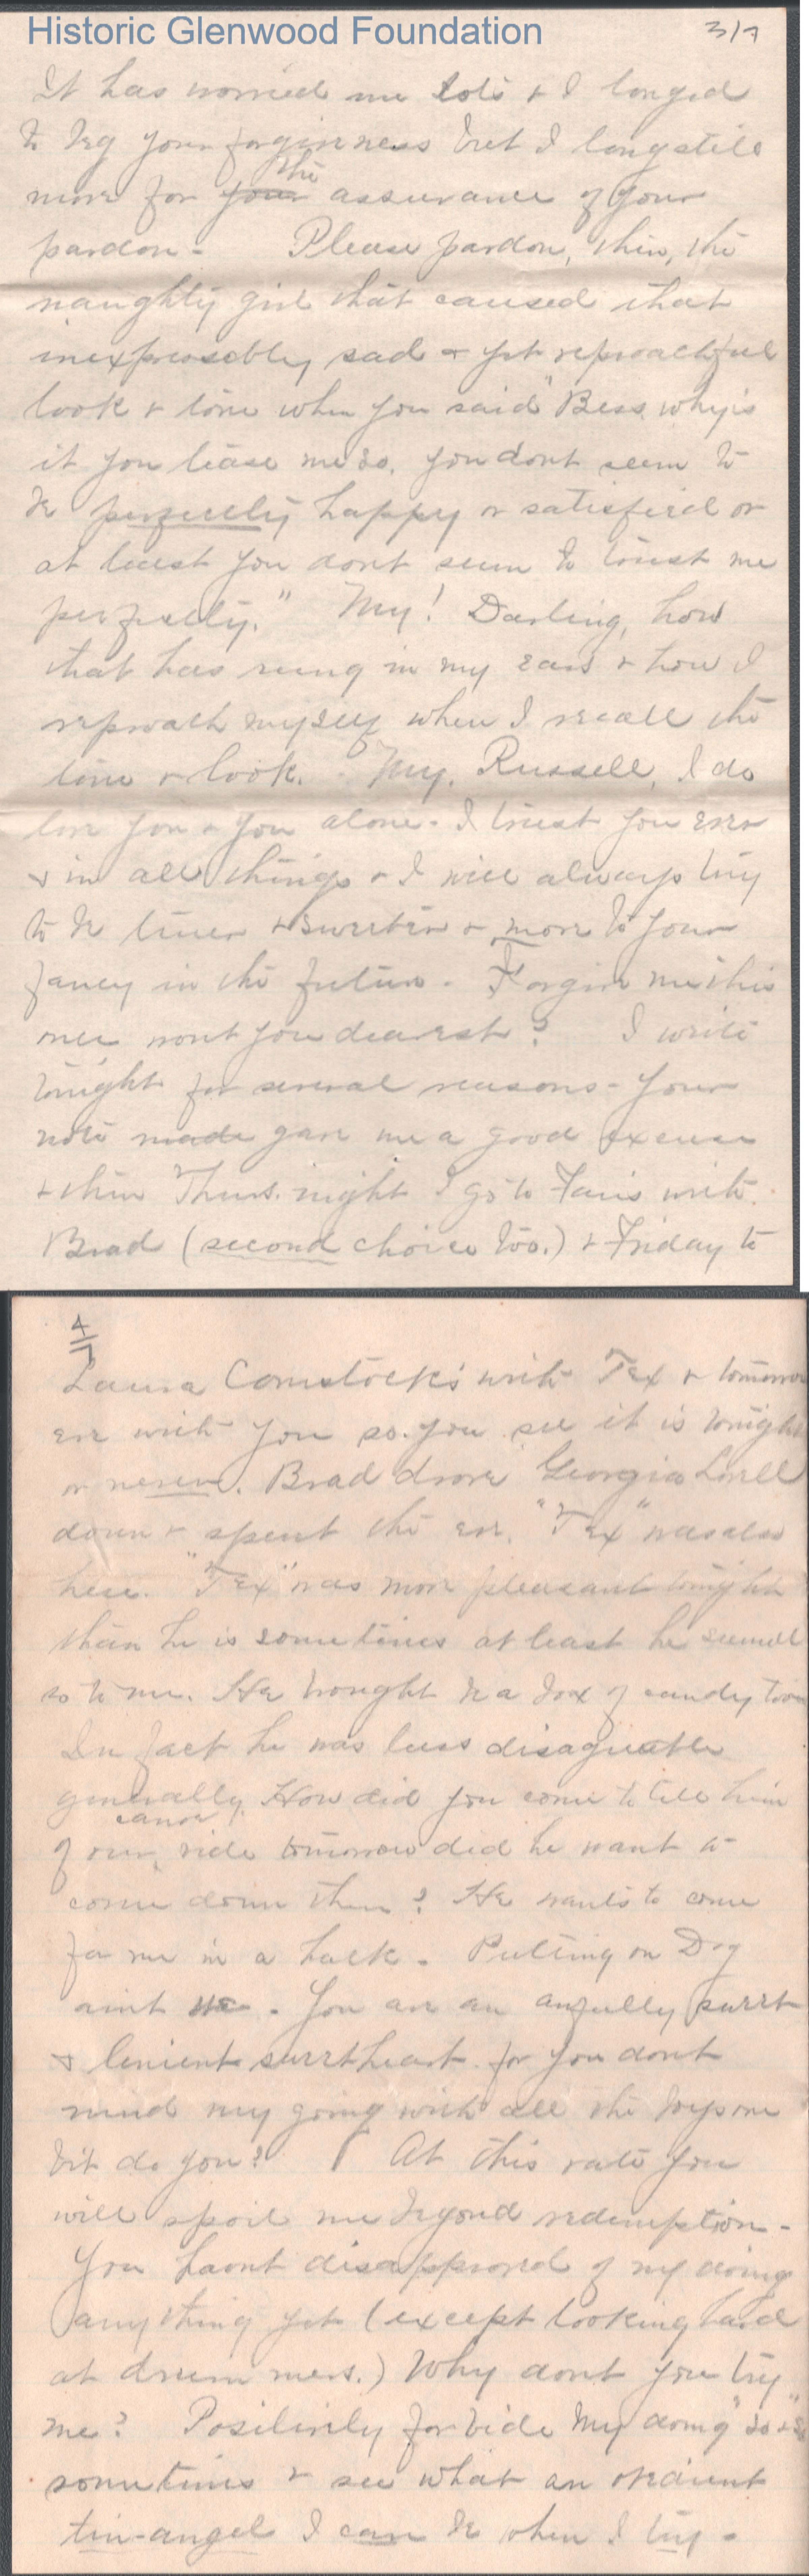 Historic Glenwood Foundation
3/7
It has worried me lots & I longed
to beg your forgiveness but I long still
the
more for your assurance of your
pardon - Please pardon, then, the
naughty girl that caused that
inexpressibly sad & yet reproachful
look & tone when you said "Bess why is
it you tease me so, you dont seem to
be perfectly happy or satisfied or
at least you dont seem to trust me
perfectly." My! Darling, how
that has rung in my ears & how I
reproach myself when I recall the
tone & look. My, Russell, I do
love you & you alone - I trust you ever
& in all things & I will always try
to be truer & sweeter & more to your
fancy in the future - Forgive me this
once wont you dearest? I write
tonight for several reasons - Your
note made gave me a good excuse
& then Thurs. night I go to Fair with
Brad (second choice too.) & Friday to
4/7
Laura Comstock's with Tex & tomorrow
eve with you so you see it is tonight
or never. Brad drove Georgia Lovell
down & spent the eve. "Tex" was also
here. "Tex" was more pleasant tonight
than he is sometimes at least he seemed
so to me. He brought be a box of candy too
In fact he was less disagreeable
generally. How did you come to tell him
canoe
of our ride tomorrow did he want to
come down then? He wants to come
for me in a hack - Putting on Dog
aint he - You are an awfully sweet
& lenient sweetheart for you dont
mind my going with all the boys one
bit do you? At this rate you
will spoil me beyond redemption -
You havnt disapproved of my doing
anything yet (except looking hard
at drummers.) Why dont you try
me? Positively forbide my doing "so & so"
sometimes & see what an obedient
tin-angel I can be when I try -